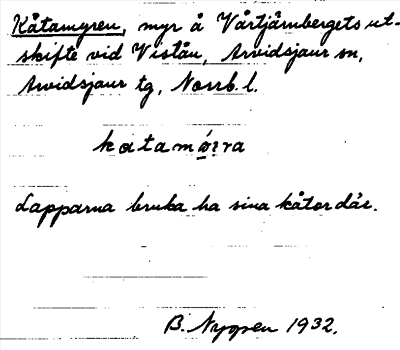 Kåtamyren, myr å Vårtjärnbergets ut-
skifte vid Viståu, Arvidsjaur sn,
Arvidsjaur tg, Norrb. l.
katamó:ra
Lapparna bruka ha sina kåtor där.
B. Nygren 1932.